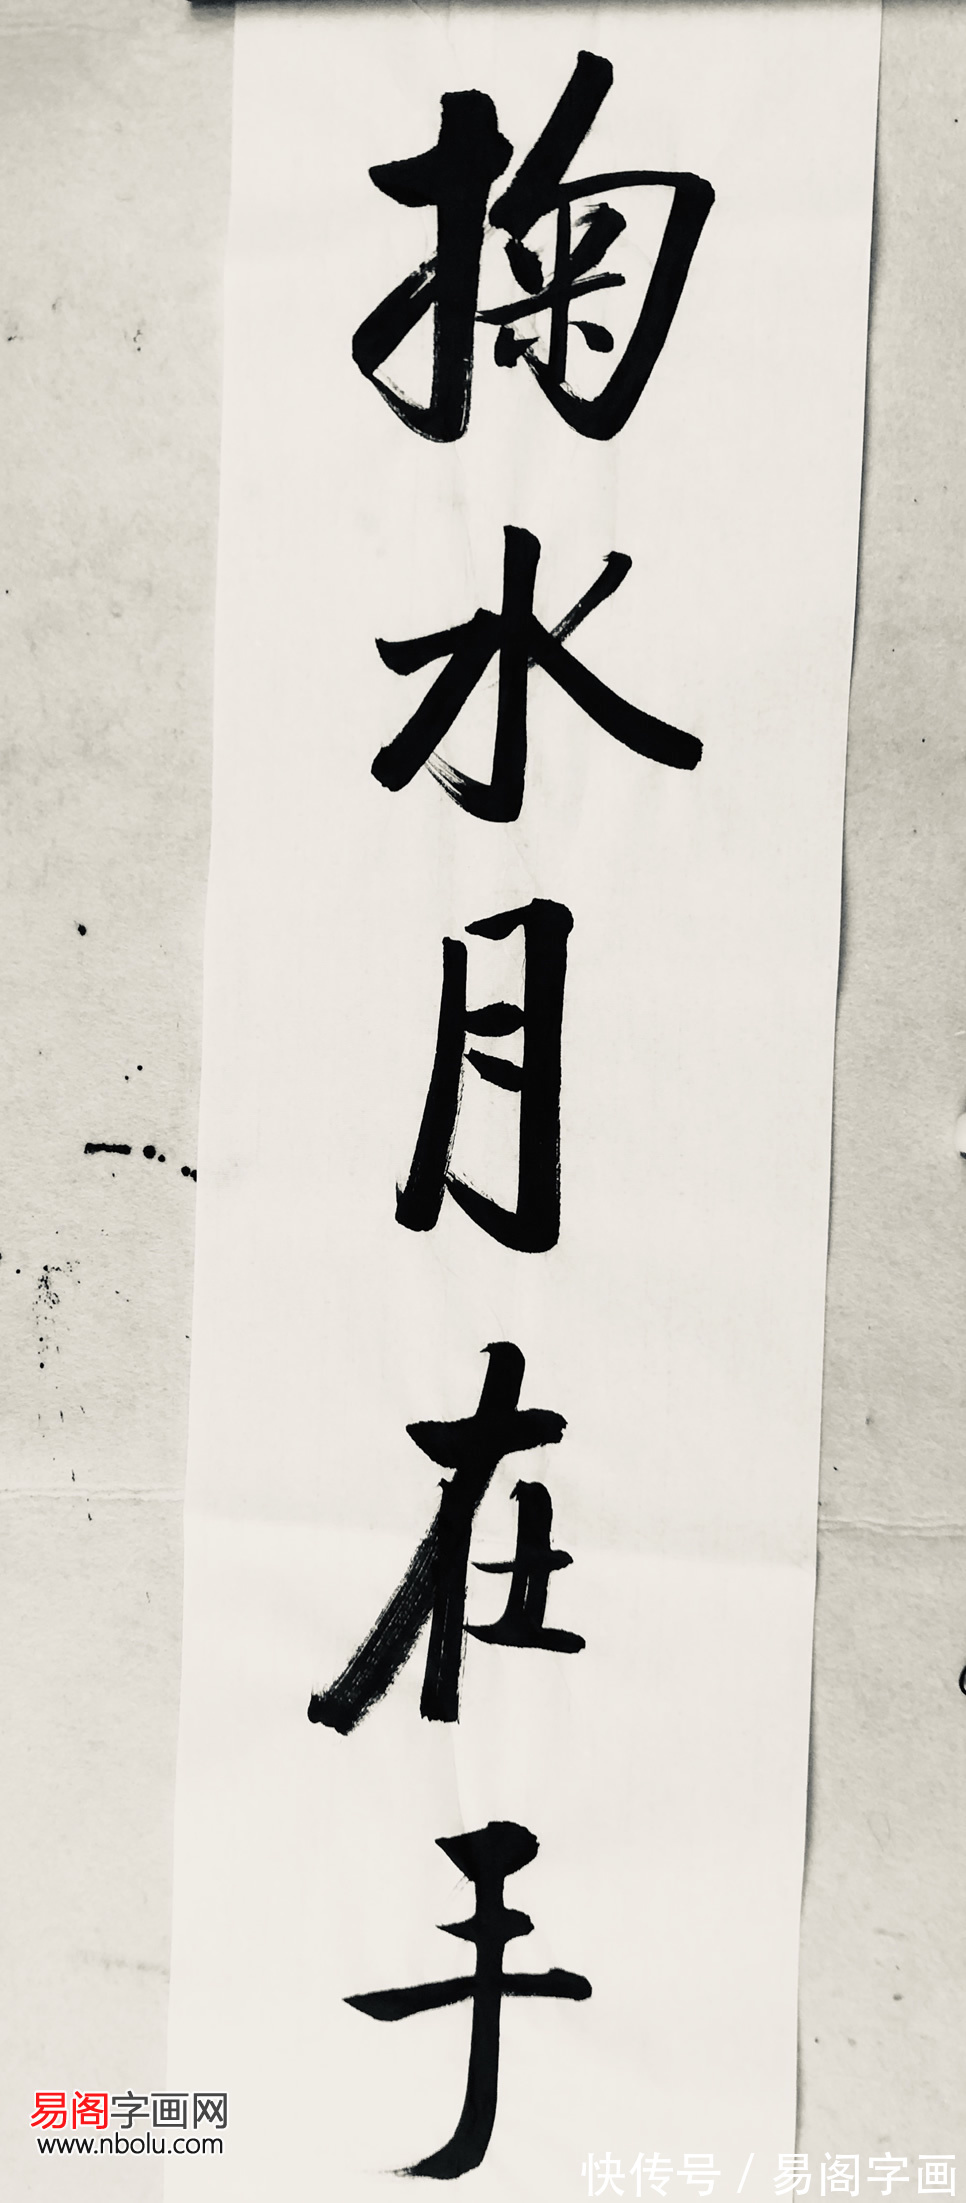 掬水月在手
易阁字画网
www.nbolu.com
快传号 / 易阁字画